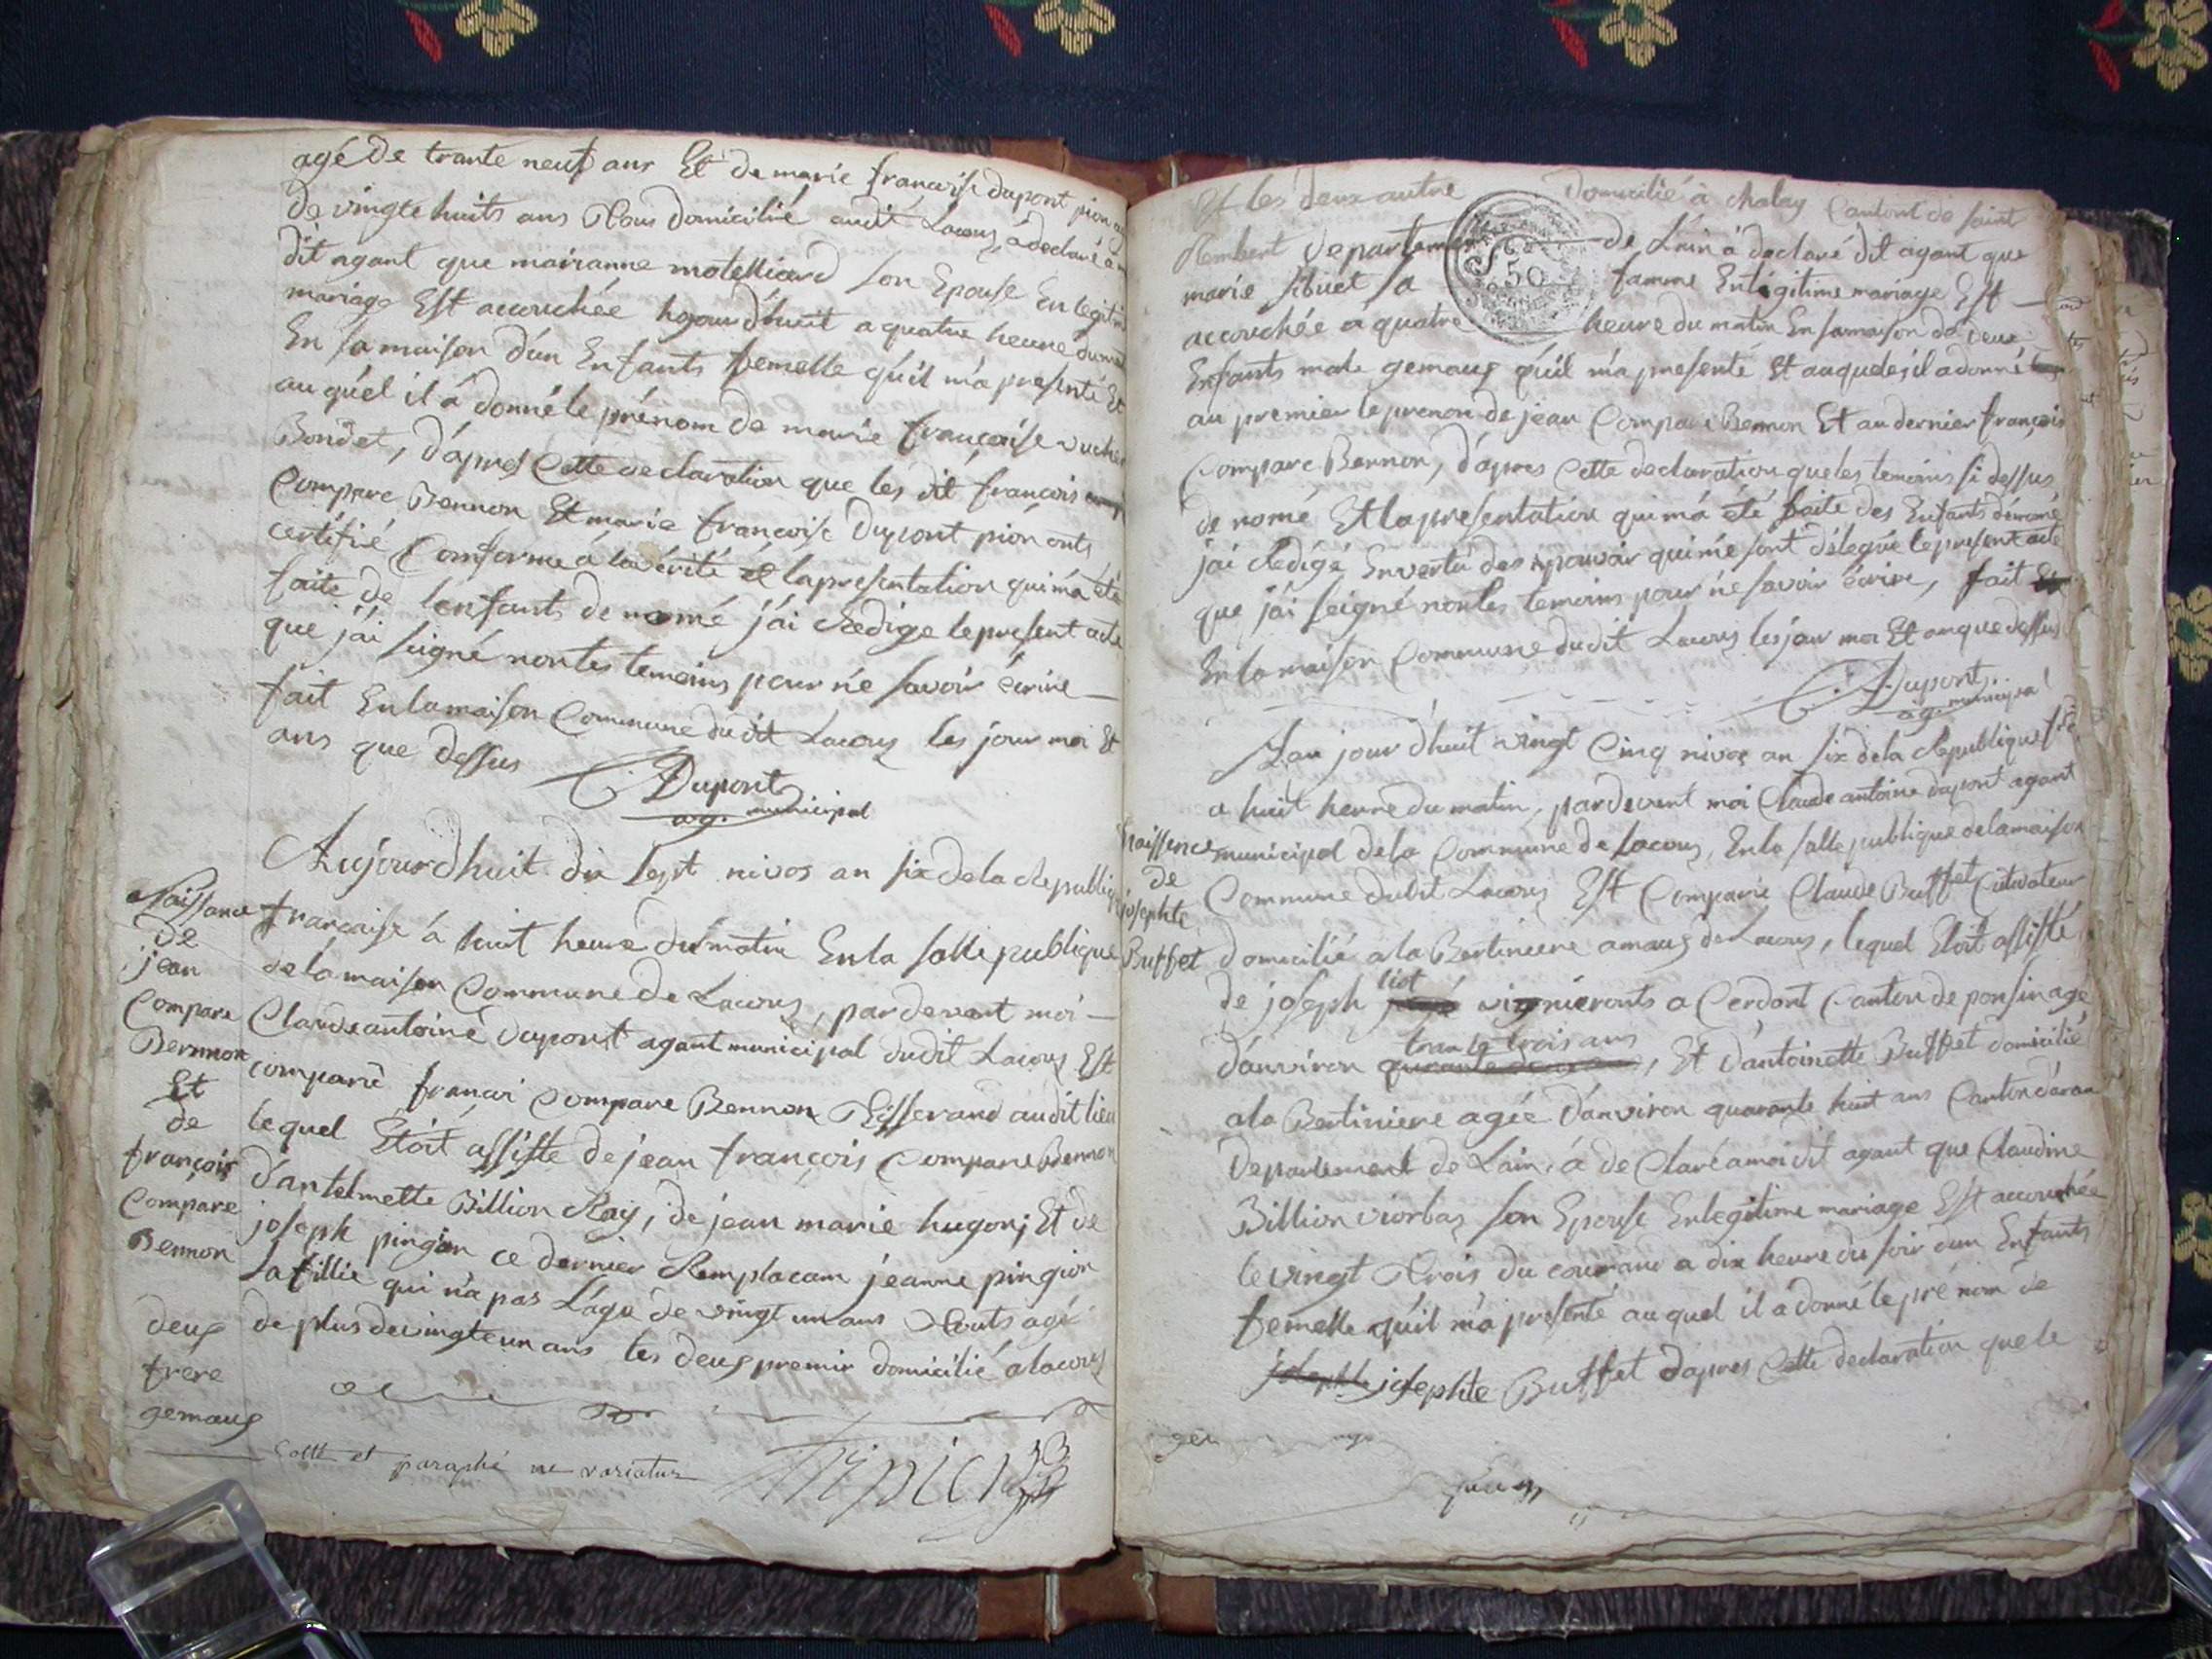 agé de trante neuf ans Et de marie francoise dupont pion
de vingte huits ans Tous domicilié audit Lacoux, a declaré a
dit agant que mairanne motelliard son Epouse En legiti
mariage Est accouchée hojourd'huit a quatre heure du
En sa maison d'un Enfants femelle qu'il m'a presenté Et
au quel il a donné le prénom de marie françoise
Bondet, d'apres Cette declaration que les dit francois
Compare Bennon Et marie francoise Dupont pion onts
certifié Comforme a la vérité et la presentation qui m'a été
faite de l'enfants de nomé j'ai Redigé le present acte
que j'ai seigné non les temoins pour ne savoir écrire
fait En la maison Commune du dit Lacoux les jour moi Et
ans que dessus
Dupont
ag. municipal
Naissance
de
jean
Compare
Bennon
Et
de
françois
Compare
Bennon
deux
frere
gemaux
Aujourdhuit dix sept nivos an six de la Republiq
francaise a huit heure du matin En la salle publique
de la maison Commune de Lacoux, par devant moi
Claude antoine dupont agant municipal du dit Lacoux Est
comparu françoi Compare Bennon Tisserand audit lieu
lequel Etoit assisté de jean françois Compare Bennon
d'antelmette Billion Rey, de jean marie hugon, Et de
joseph pingion ce dernier Remplacam jeanne pingion
sa fillie qui n'a pas L'age de vingt un ans Touts agé
de plus de vingte un ans les deux premir domicilié a lacoux
Cotté et paraphé ne varietur
Et les deux autre domicilié à chaley Canton de saint
Rembert Departement de L'ain à declaré dit agant que
50
marie sibuet sa famme En légitime mariage Est
accouchée a quatre heure du matin En sa maison de deux
Enfants male gemaux qu'il m'a presenté Et auquels il a donné
au premier le prenon de jean Compare Bennon Et au dernier françois
Compare Bennon, d'apres Cette declaration que les temoins si dessus
de nomé Et la presentation qui m'a été faite des Enfants dénomé
j'ai Redigé En vertu des pouvoir qui me sont délegué le present acte
que j'ai seigné non les temoins pour ne savoir écrire, fait
En la maison Commune du dit Lacoux les jour moi Et an que dessus
Dupont
ag. municipal
Naissence
de
josephte
Buffet
Lau jour d'huit vingt Cinq nivos an six de la Republique
a huit heure du matin, par devent moi Claude antoine dupont agant
municipal de la Commune de Lacoux, En la salle publique de la maison
Commune du dit Lacoux Est Comparu Claude Buffet Cultivateur
domicilié a la Bertiniere amaux de Lacoux, lequel Etoit assisté
liot
de joseph vigneronts a Cerdont Canton de ponsin agé
trante trois ans
d'anviron quarante, Et d'antoinette Buffet domicilié
a la Bertiniere agée d'anviron quarante huit ans Canton d'aran
Departement de Lain, a de Claré a moi dit agant que Claudine
Billion viorbas son Epouse En legitime mariage Est accouchée
le vingt Trois du courand a dix heure du soir d'un Enfants
femelle qu'il m'a presenté au quel il a donné le pré nom de
joseph josephte Buffet d'apres Cette declaration que le